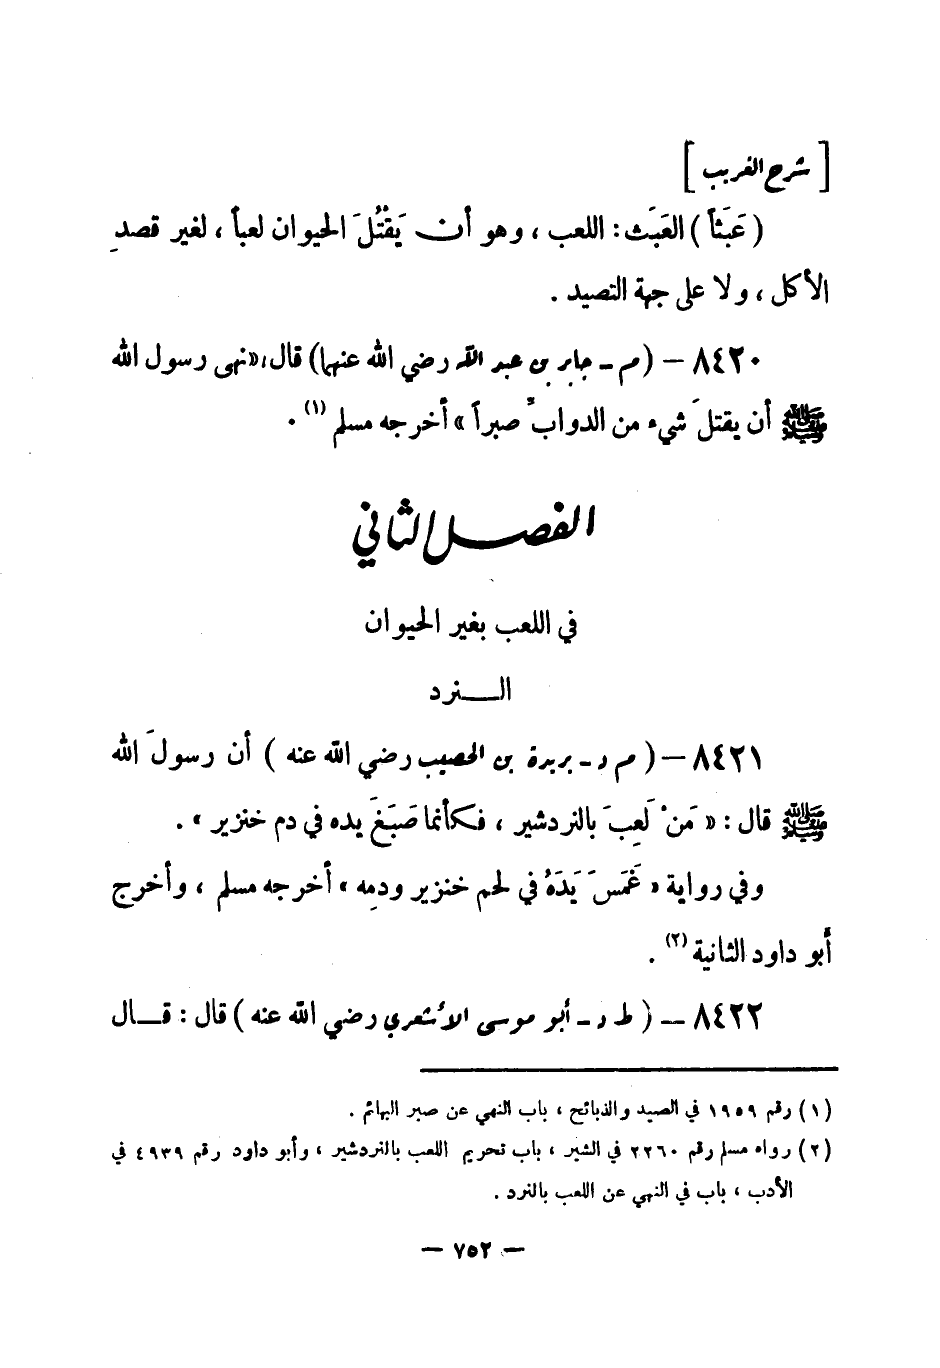 [ شرح الغريب ]
( عَبَثاً ) العَبَث : اللعب ، وهو أن يَقْتُلَ الحيوان لعباً ، لغير قصدِ
الأكل ، ولا على جهة التصيد .
٨٤٢٠ – ( م - جابر بن عبد الله رضي الله عنهما ) قال : « نهى رسول الله
ﷺ أن يقتلَ شيء من الدوابِّ صبراً » أخرجه مسلم (١) .
الفصل الثاني
في اللعب بغير الحيوان
النرد
٨٤٢١ – ( م د - بريدة بن الحصيب رضي الله عنه ) أن رسولَ الله
ﷺ قال : « مَنْ لَعِبَ بالنردشير ، فكأنما صَبَغَ يده في دم خنزير » .
وفي رواية « غَمَسَ يَدَهُ في لحم خنزير ودمِه » أخرجه مسلم ، وأخرج
أبو داود الثانية (٢) .
٨٤٢٢ – ( ط د - أبو موسى الأشعري رضي الله عنه ) قال : قال
(١) رقم ١٩٥٩ في الصيد والذبائح ، باب النهي عن صبر البهائم .
(٢) رواه مسلم رقم ٢٢٦٠ في الشعر ، باب تحريم اللعب بالنردشير ، وأبو داود رقم ٤٩٣٩ في
الأدب ، باب في النهي عن اللعب بالنرد .
– ٧٥٢ –